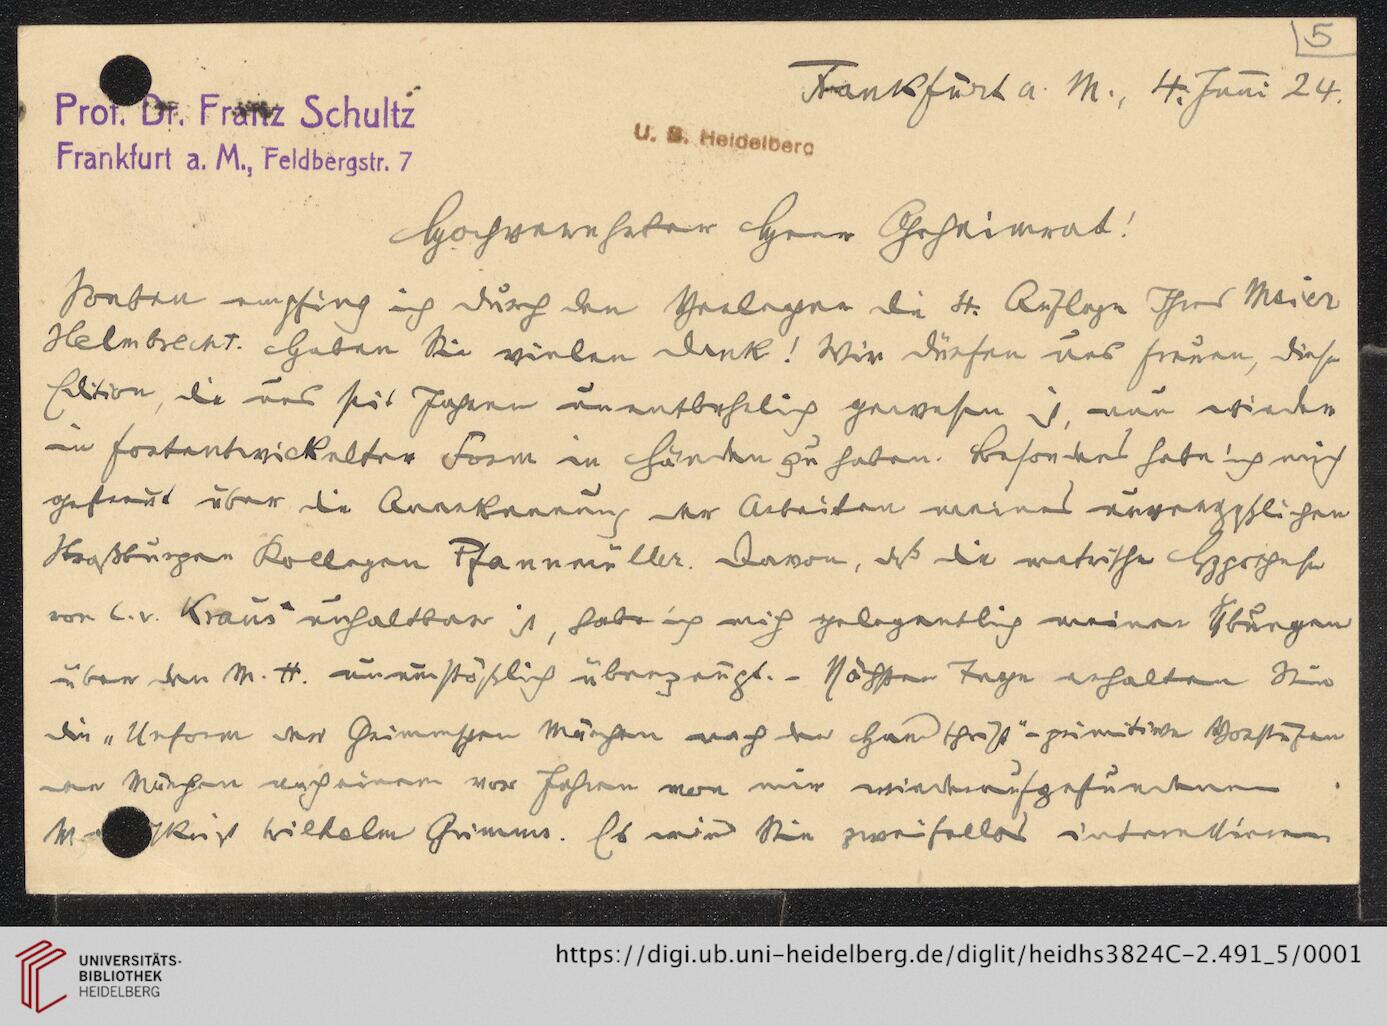 5
Prof. Dr. Franz Schultz
Frankfurt a. M., Feldbergstr. 7
Frankfurt a. M., 4. Juni 24.
U. B. Heidelberg
Hochverehrter Herr Geheimrat!
Soeben empfing ich durch den Verleger die 4. Auflage Ihres Meier
Helmbrecht. Haben Sie vielen Dank! Wir dürfen uns freuen, diese
Edition, die uns seit Jahren unentbehrlich gewesen ist, nun wieder
in fortentwickelter Form in Händen zu haben. Besonders habe ich mich
gefreut über die Anerkennung der Arbeiten meines unvergeßlichen
Straßburger Kollegen Pfannmüller. Davon, daß die metrische Hypothese
von C. v. Kraus unhaltbar ist, habe ich mich gelegentlich meiner Übungen
über den M. H. unumstößlich überzeugt. – Nächster Tage erhalten Sie
die „Urform der Grimmschen Märchen nach der Handschrift" – primitive Vorstufen
der Märchen nach einem vor Jahren von mir wiederaufgefundenen
Wilhelm Grimms. Es wird Sie zweifellos interessieren
UNIVERSITÄTS-
BIBLIOTHEK
HEIDELBERG
https://digi.ub.uni-heidelberg.de/diglit/heidhs3824C-2.491_5/0001